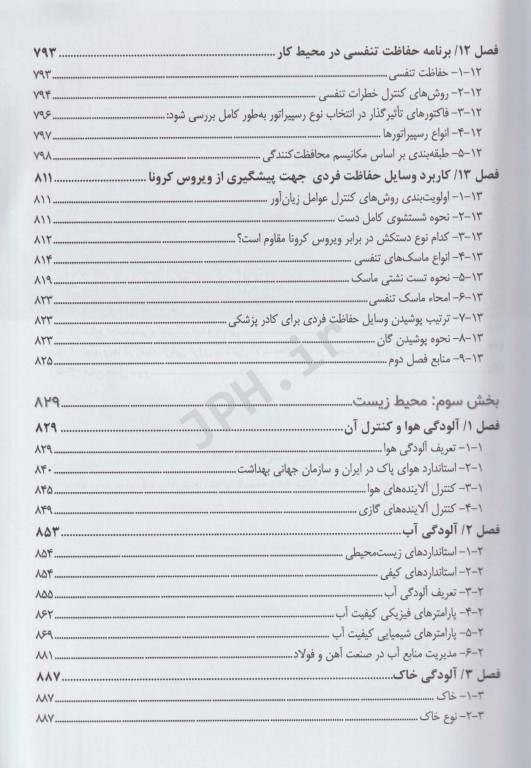 فصل ۱۲/ برنامه حفاظت تنفسی در محیط کار ........ ۷۹۳
۱۲-۱- حفاظت تنفسی ........ ۷۹۳
۱۲-۲- روش‌های کنترل خطرات تنفسی ........ ۷۹۴
۱۲-۳- فاکتورهای تأثیرگذار در انتخاب نوع رسپیراتور به‌طور کامل بررسی شود: ........ ۷۹۶
۱۲-۴- انواع رسپیراتورها ........ ۷۹۷
۱۲-۵- طبقه‌بندی بر اساس مکانیسم محافظت‌کنندگی ........ ۷۹۸
فصل ۱۳/ کاربرد وسایل حفاظت فردی جهت پیشگیری از ویروس کرونا ........ ۸۱۱
۱۳-۱- اولویت‌بندی روش‌های کنترل عوامل زیان‌آور ........ ۸۱۱
۱۳-۲- نحوه شستشوی کامل دست ........ ۸۱۱
۱۳-۳- کدام نوع دستکش در برابر ویروس کرونا مقاوم است؟ ........ ۸۱۲
۱۳-۴- انواع ماسک‌های تنفسی ........ ۸۱۴
۱۳-۵- نحوه تست نشتی ماسک ........ ۸۱۹
۱۳-۶- امحاء ماسک تنفسی ........ ۸۲۳
۱۳-۷- ترتیب پوشیدن وسایل حفاظت فردی برای کادر پزشکی ........ ۸۲۳
۱۳-۸- نحوه پوشیدن گان ........ ۸۲۳
۱۳-۹- منابع فصل دوم ........ ۸۲۵
بخش سوم: محیط زیست ........ ۸۲۹
فصل ۱/ آلودگی هوا و کنترل آن ........ ۸۲۹
۱-۱- تعریف آلودگی هوا ........ ۸۲۹
۱-۲- استاندارد هوای پاک در ایران و سازمان جهانی بهداشت ........ ۸۴۰
۱-۳- کنترل آلاینده‌های هوا ........ ۸۴۵
۱-۴- کنترل آلاینده‌های گازی ........ ۸۴۹
فصل ۲/ آلودگی آب ........ ۸۵۳
۲-۱- استانداردهای زیست‌محیطی ........ ۸۵۴
۲-۲- استانداردهای کیفی ........ ۸۵۴
۲-۳- تعریف آلودگی آب ........ ۸۵۵
۲-۴- پارامترهای فیزیکی کیفیت آب ........ ۸۶۲
۲-۵- پارامترهای شیمیایی کیفیت آب ........ ۸۶۹
۲-۶- مدیریت منابع آب در صنعت آهن و فولاد ........ ۸۸۱
فصل ۳/ آلودگی خاک ........ ۸۸۷
۳-۱- خاک ........ ۸۸۷
۳-۲- نوع خاک ........ ۸۸۷
JPH.ir